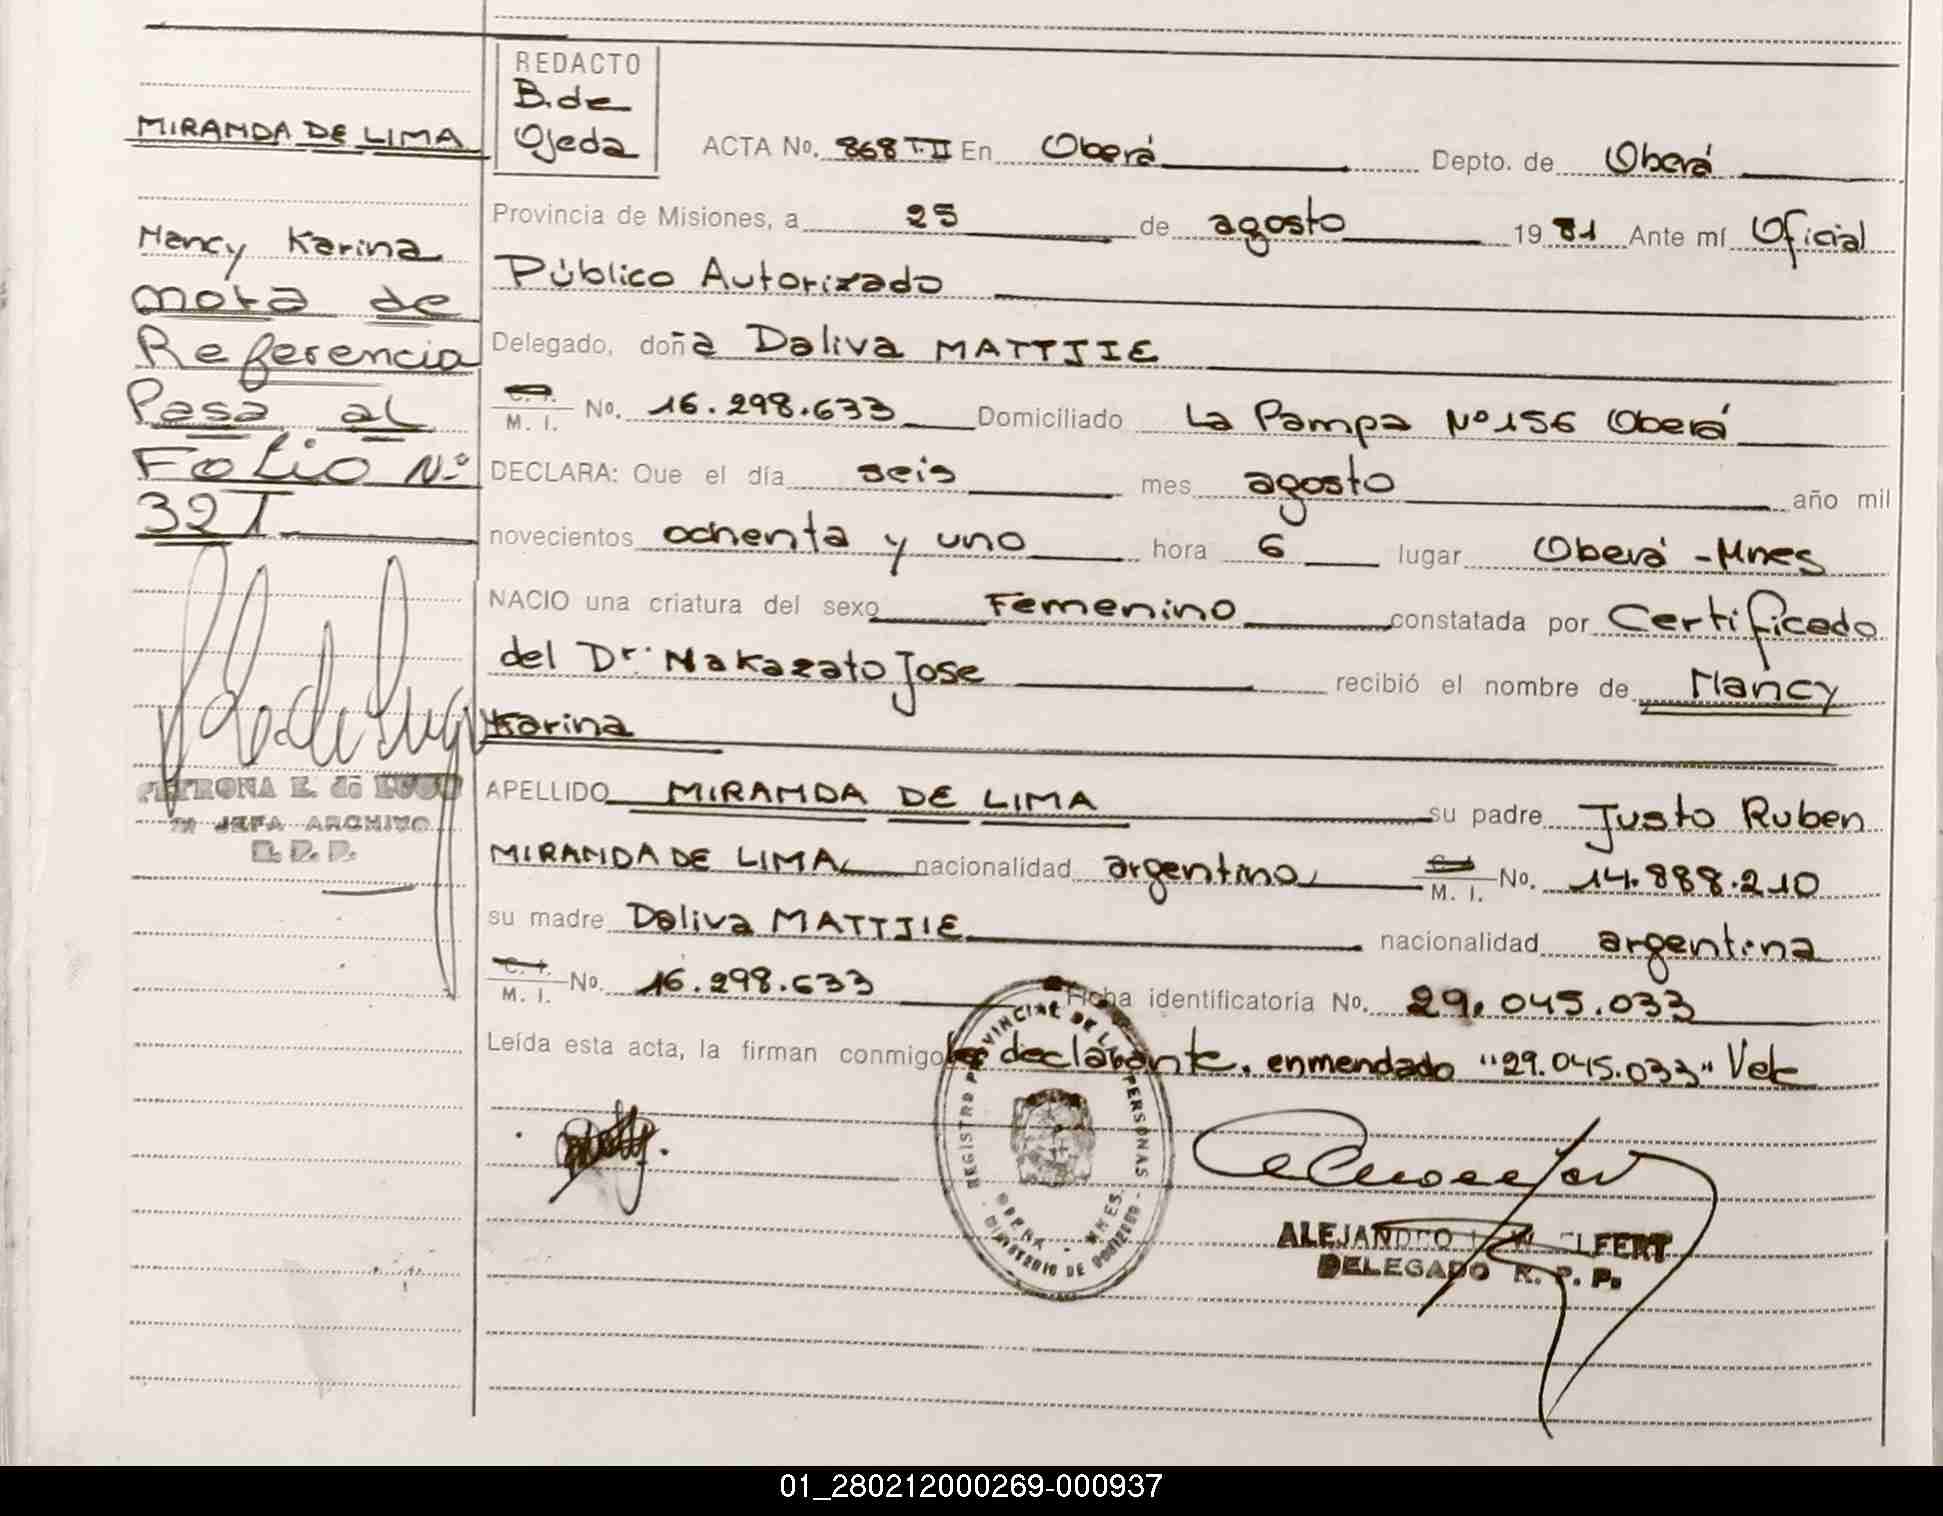 MIRANDA DE LIMA
Nancy Karina
nota de
Referencia
Pasa al
Folio Nº
32 I
PETRONA E. de LUGO
JEFA ARCHIVO
R. P. P.
REDACTO
B. de
Ojeda
ACTA No. 868 T.II En Oberá Depto. de Oberá
Provincia de Misiones, a 25 de agosto 1981 Ante mí Oficial
Público Autorizado
Delegado, doña Daliva MATTJIE
C. I. M. I. No. 16.298.633 Domiciliado La Pampa Nº 156 Oberá
DECLARA: Que el día seis mes agosto año mil
novecientos ochenta y uno hora 6 lugar Oberá - Mnes
NACIO una criatura del sexo Femenino constatada por Certificado
del Dr. Nakazato Jose recibió el nombre de Nancy
Karina
APELLIDO MIRANDA DE LIMA su padre Justo Ruben
MIRANDA DE LIMA nacionalidad argentino C. I. M. I. No. 14.888.210
su madre Daliva MATTJIE nacionalidad argentina
C. I. M. I. No. 16.298.633 Ficha identificatoria No. 29.045.033
Leída esta acta, la firman conmigo declarante. enmendado "29.045.033" Vale
REGISTRO PROVINCIAL DE LAS PERSONAS
OBERA - MNES.
MINISTERIO DE GOBIERNO
ALEJANDRO
DELEGADO R. P. P.
01_280212000269-000937